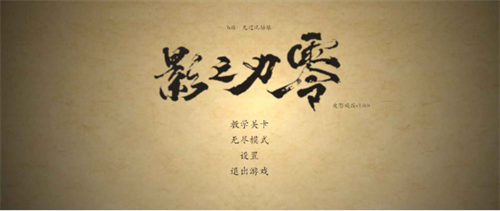 影之刃零
教学关卡
无尽模式
设置
退出游戏